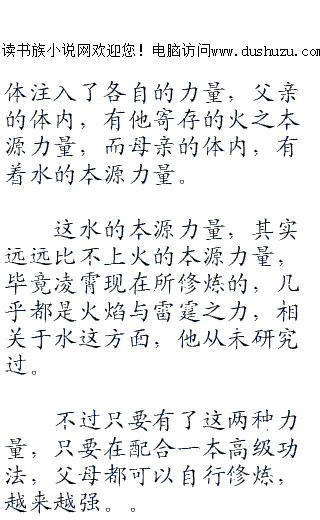 读书族小说网欢迎您！电脑访问www.dushuzu.com
体注入了各自的力量，父亲
的体内，有他寄存的火之本
源力量，而母亲的体内，有
着水的本源力量。
这水的本源力量，其实
远远比不上火的本源力量，
毕竟凌霄现在所修炼的，几
乎都是火焰与雷霆之力，相
关于水这方面，他从未研究
过。
不过只要有了这两种力
量，只要在配合一本高级功
法，父母都可以自行修炼，
越来越强。。